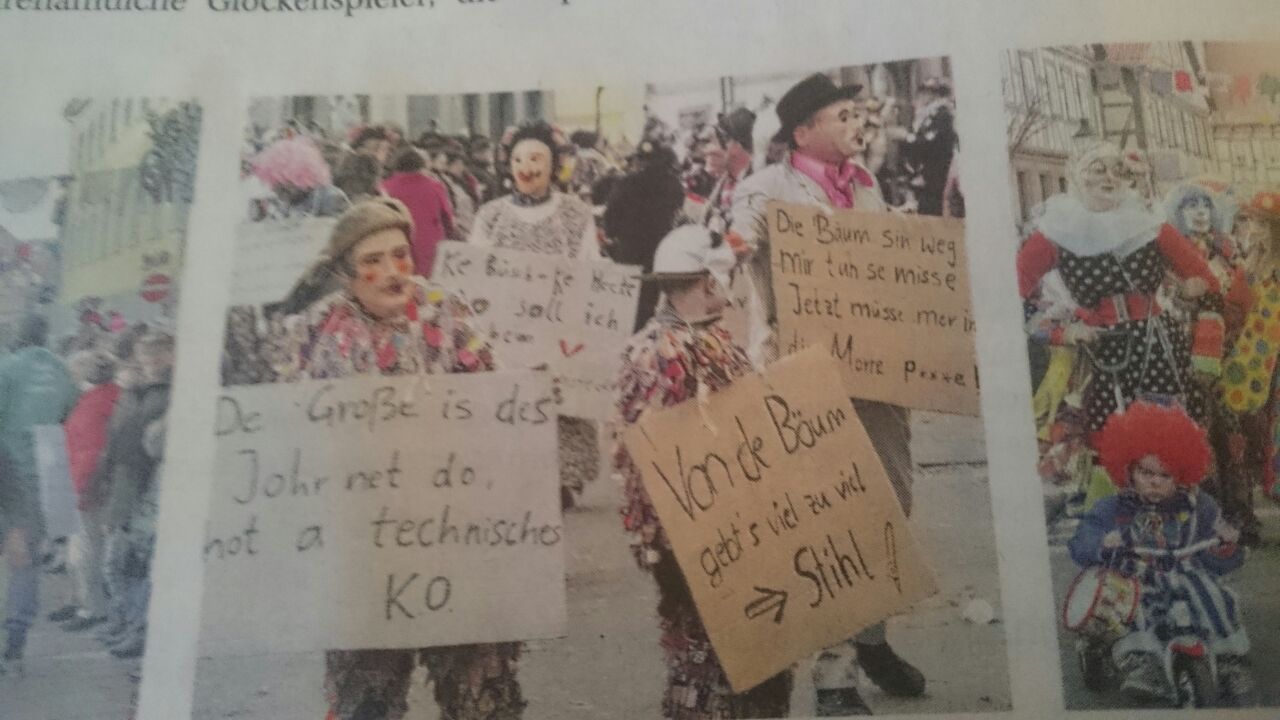 Glockenspieler,
Ke Büsch-Ke Hecke
wo soll ich
Die Bäum sin weg
mir tun se misse
Jetzt müsse mer in
die Morre p...e!
De Große is des
Johr net do,
hot a technisches
K.O.
Von de Bäum
gebt's viel zu viel
⇒ Stihl!